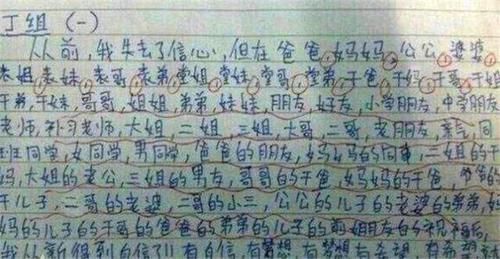 丁组 (一)
从前，我失去了信心，但在爸爸，妈妈，公公，婆婆
表姐，表妹，表哥，表弟，堂姐，堂妹，堂哥，堂弟，干爸，干妈，干哥，干姐
干弟，干妹，哥哥，姐姐，弟弟，妹妹，朋友，好友，小学朋友，中学朋友
老师，补习老师，大姐，二姐，三姐，大哥，二哥，老朋友，同
班同学，女同学，男同学，爸爸的朋友，妈妈的同事，二姐的干
妈，大姐的老公，三姐的男友，哥哥的干爸，妈妈的干爸，爷爷的
干儿子，二哥的老婆，二哥的小三，公公的儿子的老婆的弟弟，
妈的儿子的干哥的爸爸的弟弟的儿子的前朋友的祝福后，
我从新得到自信了!!有自信，有梦想，有梦想有希望，有希望